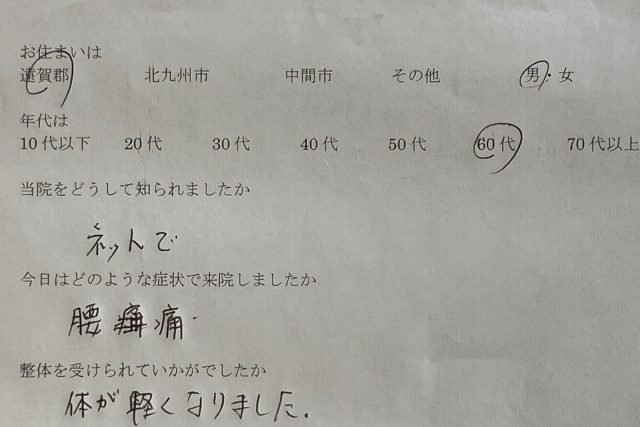 お住まいは
遠賀郡 北九州市 中間市 その他 男・女
年代は
10代以下 20代 30代 40代 50代 60代 70代以上
当院をどうして知られましたか
ネットで
今日はどのような症状で来院しましたか
腰痛.
整体を受けられていかがでしたか
体が軽くなりました.